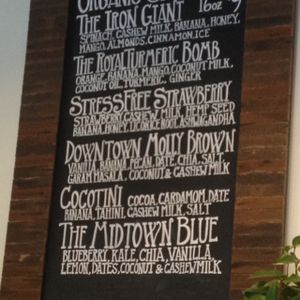 ORGANIC
16oz
THE IRON GIANT
SPINACH, CASHEW MILK, BANANA, HONEY,
MANGO, ALMONDS, CINNAMON, ICE
THE ROYAL TURMERIC BOMB
ORANGE, BANANA, MANGO, COCONUT MILK,
COCONUT OIL, TURMERIC, GINGER
STRESS FREE STRAWBERRY
STRAWBERRY, CASHEW MILK, HEMP SEED
BANANA, HONEY, LICORICE ROOT, ASHWAGANDHA
DOWNTOWN MOLLY BROWN
VANILLA, BANANA, PECAN, DATE, CHIA, SALT,
GARAM MASALA, COCONUT & CASHEW MILK
COCOTINI COCOA, CARDAMOM, DATE
BANANA, TAHINI, CASHEW MILK, SALT
THE MIDTOWN BLUE
BLUEBERRY, KALE, CHIA, VANILLA,
LEMON, DATES, COCONUT & CASHEW MILK